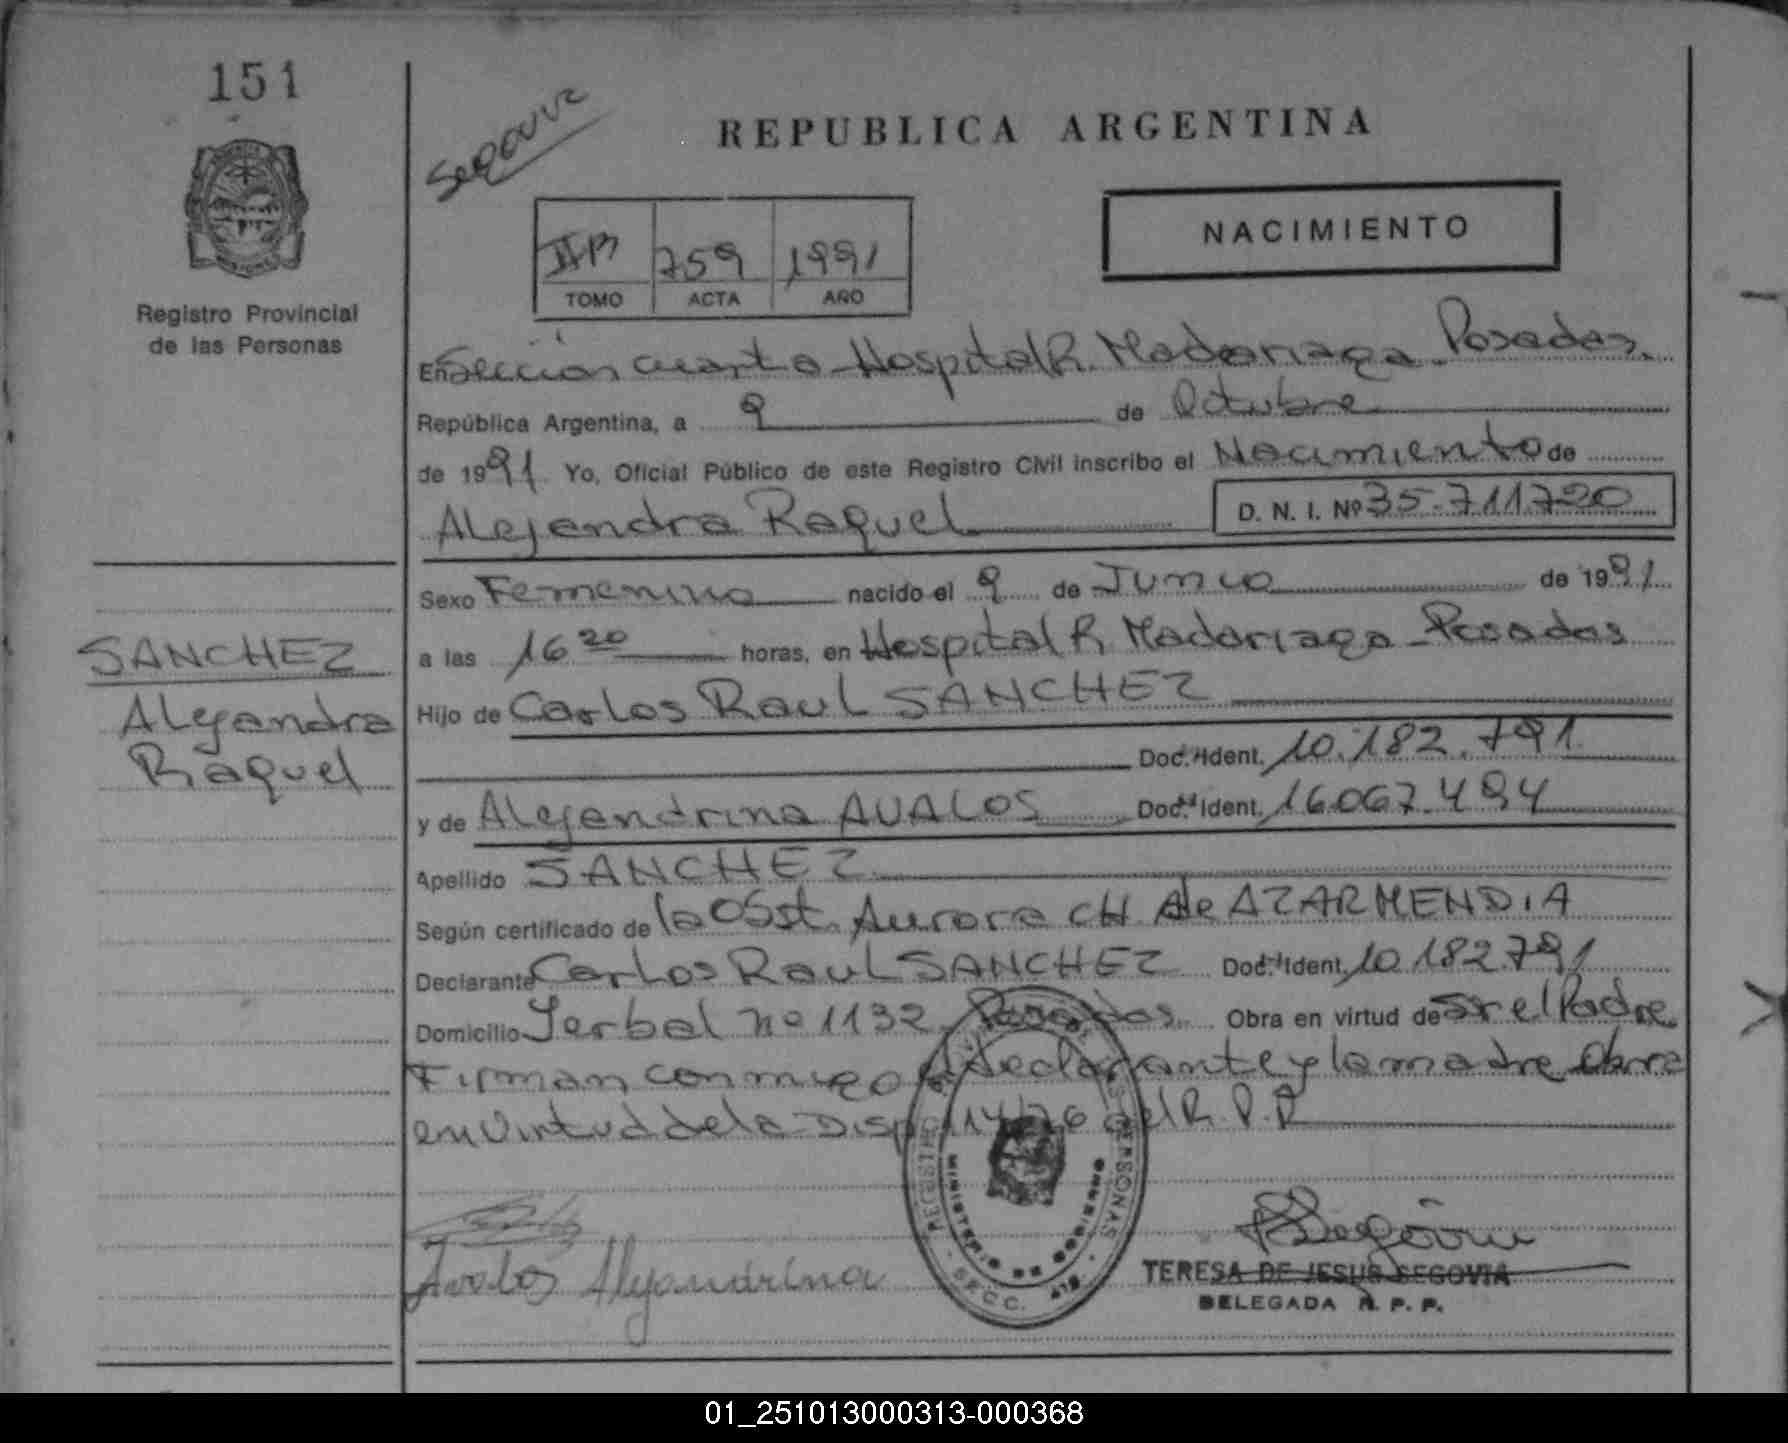 151
Registro Provincial
de las Personas
SANCHEZ
Alejandra
Raquel
REPUBLICA ARGENTINA
IIB 759 1991
TOMO ACTA AÑO
NACIMIENTO
En Sección cuarta - Hospital R. Madariaga - Posadas.
República Argentina, a 9 de Octubre
de 1991. Yo, Oficial Público de este Registro Civil inscribo el Nacimiento de
Alejandra Raquel D. N. I. Nº 35.711.720
Sexo Femenino nacido el 9 de Junio de 1991
a las 16 20 horas, en Hospital R. Madariaga - Posadas
Hijo de Carlos Raul SANCHEZ
Doc. Ident. 10.182.791
y de Alejandrina AVALOS Doc. Ident. 16.067.494
Apellido SANCHEZ
Según certificado de la Obst. Aurora CH de AZARMENDIA
Declarante Carlos Raul SANCHEZ Doc. Ident. 10.182.791
Domicilio Yerbal nº 1132. Posadas. Obra en virtud de Sr el Padre
Firman conmigo el declarante y la madre Obra
en virtud de la Disp 14/76 del R. P. P.
REGISTRO PERSONAS
MINISTERIO DE GOBIERNO
SECC. 4ta.
Avalos Alejandrina
TERESA DE JESUS SEGOVIA
DELEGADA R. P. P.
01_251013000313-000368